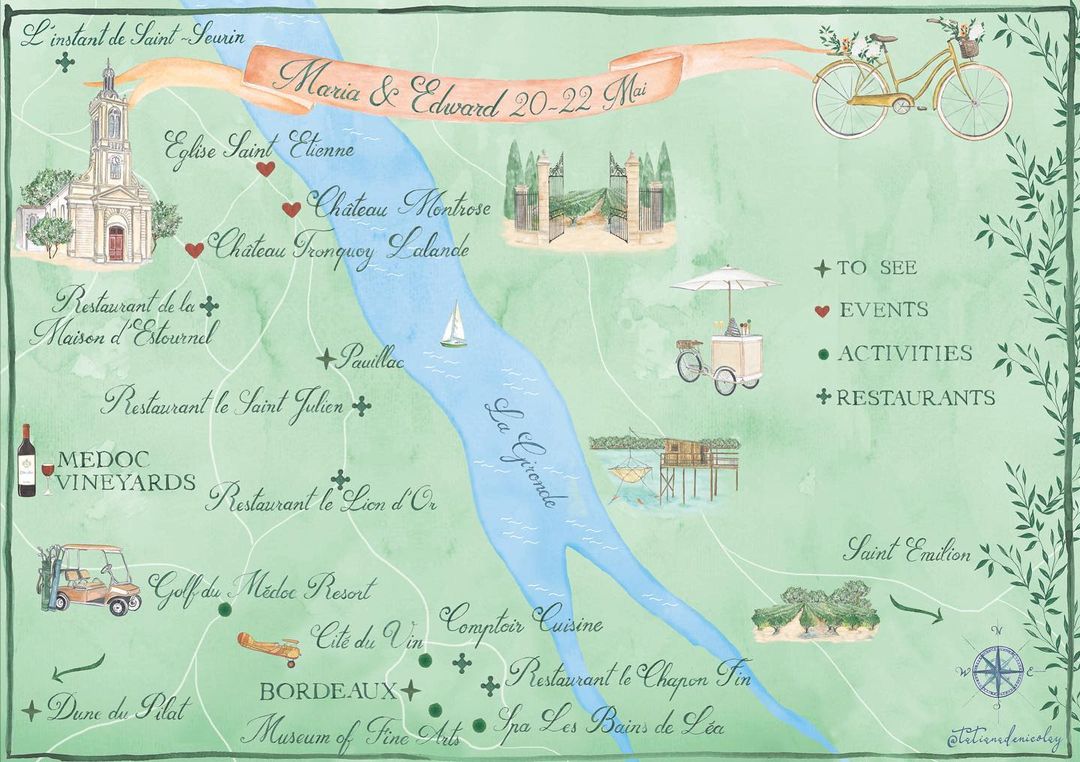 L'instant de Saint-Seurin
Maria & Edward 20-22 Mai
Eglise Saint Etienne
Château Montrose
Château Tronquoy Lalande
Restaurant de la
Maison d'Estournel
Pauillac
Restaurant le Saint Julien
MEDOC
VINEYARDS
Restaurant le Lion d'Or
La Gironde
TO SEE
EVENTS
ACTIVITIES
RESTAURANTS
Saint Emilion
Golf du Médoc Resort
Cité du Vin
Comptoir Cuisine
BORDEAUX
Restaurant le Chapon Fin
Dune du Pilat
Museum of Fine Arts
Spa Les Bains de Léa
N
W
E
@tatianadenicolay